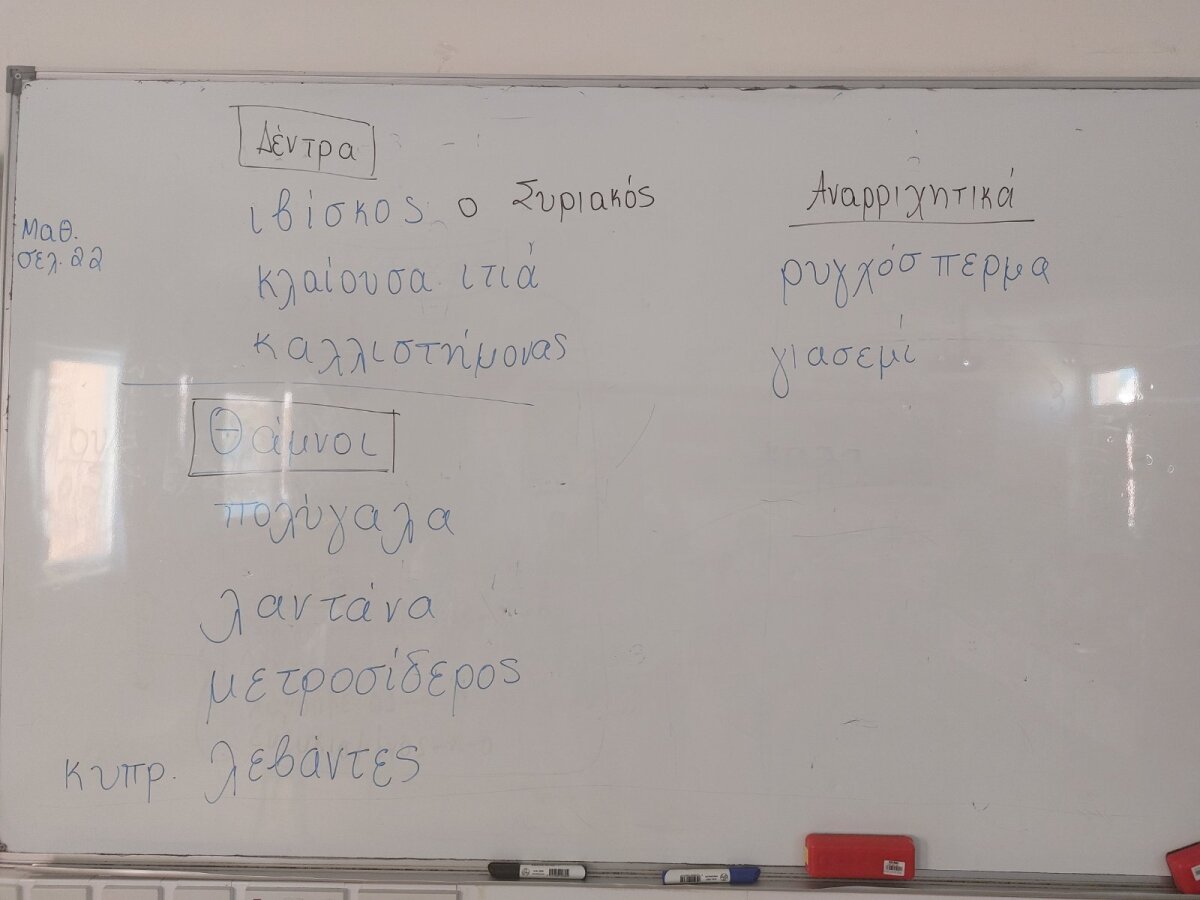 Δέντρα
ιβίσκος ο Συριακός
κλαίουσα ιτιά
καλλιστήμονας
Μαθ.
σελ. 22
Θάμνοι
πολύγαλα
λαντάνα
μετροσίδερος
κυπρ. λεβάντες
Αναρριχητικά
ρυγχόσπερμα
γιασεμί